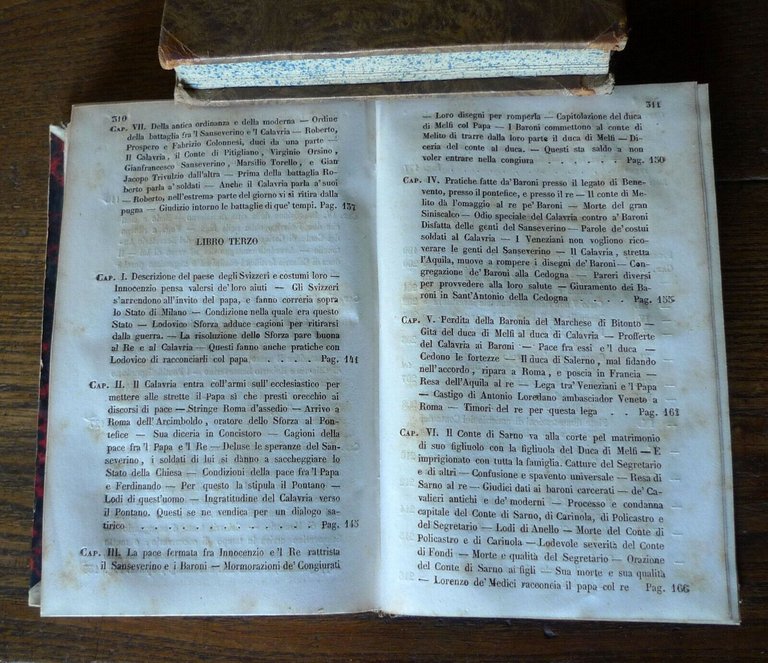 310
CAP. VII. Della antica ordinanza e della moderna — Ordine
della battaglia fra 'l Sanseverino e 'l Calavria — Roberto,
Prospero e Fabrizio Colonnesi, duci da una parte —
Il Calavria, il Conte di Pitigliano, Virginio Orsino,
Gianfrancesco Sanseverino, Marsilio Torello, e Gian
Jacopo Trivulzio dall'altra — Prima della battaglia Ro-
berto parla a' soldati — Anche il Calavria parla a' suoi
— Roberto, nell'estrema parte del giorno vi si ritira dalla
pugna — Giudizio intorno le battaglie di que' tempi. Pag. 137
LIBRO TERZO
CAP. I. Descrizione del paese degli Svizzeri e costumi loro —
Innocenzio pensa valersi de' loro aiuti — Gli Svizzeri
s'arrendono all'invito del papa, e fanno correria sopra
lo Stato di Milano — Condizione nella quale era questo
Stato — Lodovico Sforza adduce cagioni per ritirarsi
dalla guerra. — La risoluzione dello Sforza pare buona
al Re e al Calavria — Questi fanno anche pratiche con
Lodovico di racconciarli col papa. . . . Pag. 141
CAP. II. Il Calavria entra coll'armi sull'ecclesiastico per
mettere alle strette il Papa sì che presti orecchio ai
discorsi di pace — Stringe Roma d'assedio — Arrivo a
Roma dell'Arcimboldo, oratore dello Sforza al Pon-
tefice — Sua diceria in Concistoro — Cagioni della
pace fra 'l Papa e 'l Re — Deluse le speranze del San-
severino, i soldati di lui si danno a saccheggiare lo
Stato della Chiesa — Condizioni della pace fra 'l Papa
e Ferdinando — Per questo la stipula il Pontano —
Lodi di quest'uomo. — Ingratitudine del Calavria verso
il Pontano. Questi se ne vendica per un dialogo sa-
tirico . . . . . . . . . . Pag. 145
CAP. III. La pace fermata fra Innocenzio e 'l Re rattrista
il Sanseverino e i Baroni — Mormorazioni de' Congiurati
311
— Loro disegni per romperla — Capitolazione del duca
di Melfi col Papa — I Baroni commettono al conte di
Melito di trarre dalla loro parte il duca di Melfi — Di-
ceria del conte al duca. — Questi sta saldo a non
voler entrare nella congiura . . . . . Pag. 150
CAP. IV. Pratiche fatte da' Baroni presso il legato di Bene-
vento, presso il pontefice, e presso il re — Il conte di Me-
lito dà l'omaggio al re pe' Baroni — Morte del gran
Siniscalco — Odio speciale del Calavria contro a' Baroni
Disfatta delle genti del Sanseverino — Parole de' costui
soldati al Calavria — I Veneziani non vogliono rico-
verare le genti del Sanseverino — Il Calavria, stretta
l'Aquila, muove a rompere i disegni de' Baroni — Con-
gregazione de' Baroni alla Cedogna — Pareri diversi
per provvedere alla loro salute — Giuramento dei Ba-
roni in Sant'Antonio della Cedogna . . . . . Pag. 155
CAP. V. Perdita della Baronia del Marchese di Bitonto —
Gita del duca di Melfi al duca di Calavria — Profferte
del Calavria ai Baroni — Pace fra essi e 'l duca —
Cedono le fortezze — Il duca di Salerno, mal fidando
nell'accordo, ripara a Roma, e poscia in Francia —
Resa dell'Aquila al re — Lega tra' Veneziani e 'l Papa
— Castigo di Antonio Loredano ambasciador Veneto a
Roma — Timori del re per questa lega . . Pag. 161
CAP. VI. Il Conte di Sarno va alla corte pel matrimonio
di suo figliuolo con la figliuola del Duca di Melfi — E
imprigionato con tutta la famiglia. Catture del Segretario
e di altri — Confusione e spavento universale — Resa di
Sarno al re — Giudici dati ai baroni carcerati — de' Ca-
valieri antichi e de' moderni — Processo e condanna
capitale del Conte di Sarno, di Carinola, di Policastro e
del Segretario — Lodi di Anello — Morte del Conte di
Policastro e di Carinola — Lodevole severità del Conte
di Fondi — Morte e qualità del Segretario — Orazione
del Conte di Sarno ai figli — Sua morte e sua qualità
— Lorenzo de' Medici racconcia il papa col re Pag. 166